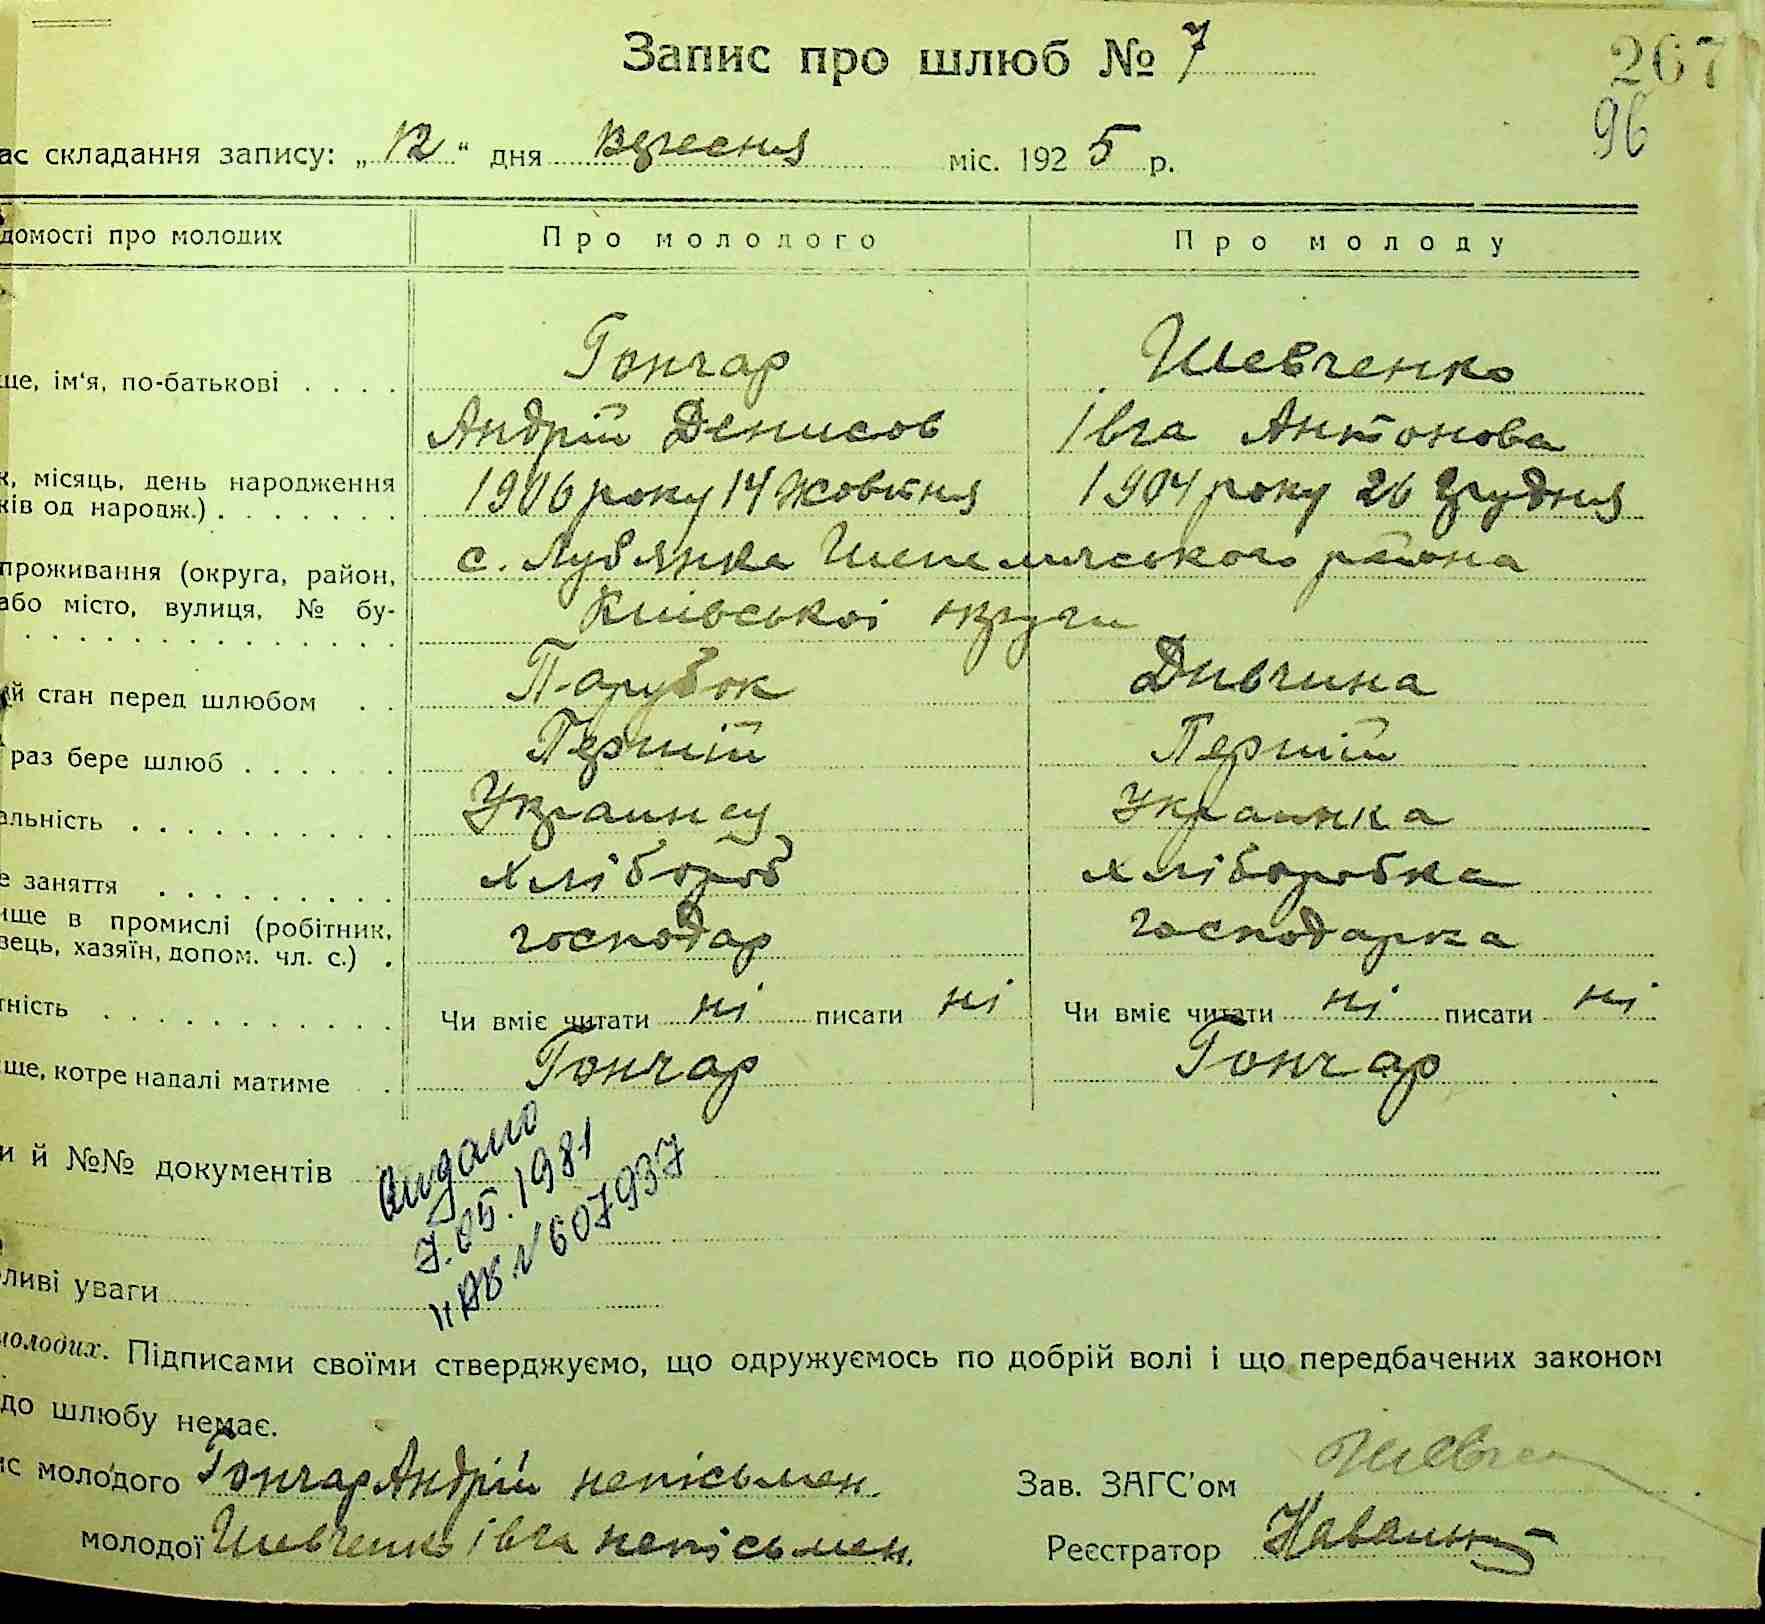 Запис про шлюб № 7
267
96
ас складання запису: „12“ дня Вересня міс. 1925 р.
домості про молодих Про молодого Про молоду
Гончар Шевченко
ще, ім‘я, по-батькові . . . .
Андрій Денисов Івга Антонова
к, місяць, день народження 1906 року 14 Жовтня 1904 року 26 Грудня
ків од народж.) . . . . . . .
с. Лубянка Шепеличського района
проживання (округа, район,
або місто, вулиця, № бу- Київської округи
Парубок Дивчина
ий стан перед шлюбом . .
раз бере шлюб . . . . . . Первий Первий
альність . . . . . . . . . . Украинец Украинка
е заняття . . . . . . . . . хлібороб хліборобка
ище в промислі (робітник, господар господарка
вець, хазяїн, допом. чл. с.) .
тність . . . . . . . . . . . Чи вміє читати ні писати ні Чи вміє читати ні писати ні
ще, котре надалі матиме . Гончар Гончар
и й №№ документів
видано
7.05.1981
607937
ливі уваги
молодих. Підписами своїми стверджуємо, що одружуємось по добрій волі і що передбачених законом
до шлюбу немає.
ис молодого Гончар Андрій непісьмен. Зав. ЗАГС’ом
молодої Шевченко івга непісьмен. Реєстратор